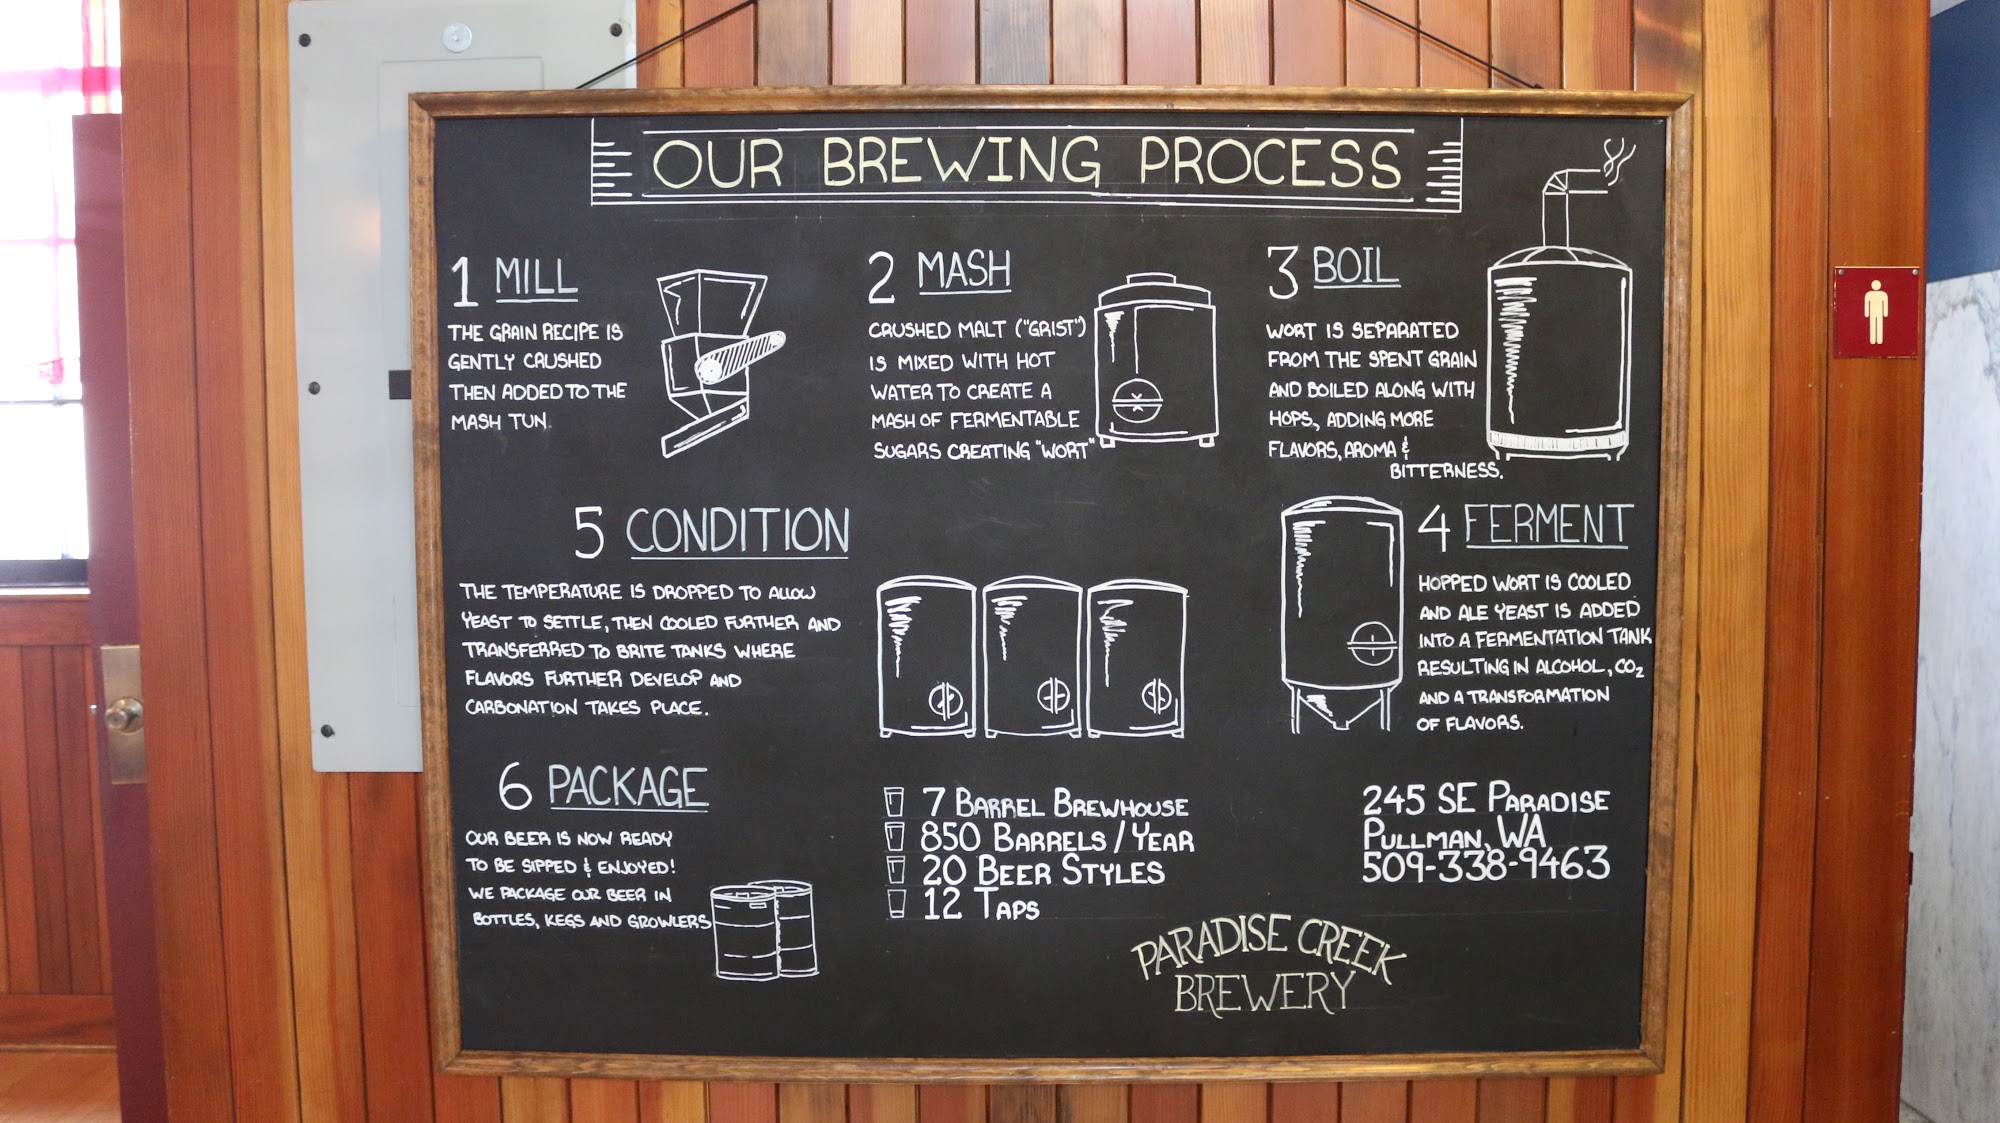 OUR BREWING PROCESS
1 MILL
THE GRAIN RECIPE IS
GENTLY CRUSHED
THEN ADDED TO THE
MASH TUN.
2 MASH
CRUSHED MALT ("GRIST")
IS MIXED WITH HOT
WATER TO CREATE A
MASH OF FERMENTABLE
SUGARS CREATING "WORT"
3 BOIL
WORT IS SEPARATED
FROM THE SPENT GRAIN
AND BOILED ALONG WITH
HOPS, ADDING MORE
FLAVORS, AROMA &
BITTERNESS.
4 FERMENT
HOPPED WORT IS COOLED
AND ALE YEAST IS ADDED
INTO A FERMENTATION TANK
RESULTING IN ALCOHOL, CO₂
AND A TRANSFORMATION
OF FLAVORS.
5 CONDITION
THE TEMPERATURE IS DROPPED TO ALLOW
YEAST TO SETTLE, THEN COOLED FURTHER AND
TRANSFERRED TO BRITE TANKS WHERE
FLAVORS FURTHER DEVELOP AND
CARBONATION TAKES PLACE.
6 PACKAGE
OUR BEER IS NOW READY
TO BE SIPPED & ENJOYED!
WE PACKAGE OUR BEER IN
BOTTLES, KEGS AND GROWLERS
7 BARREL BREWHOUSE
850 BARRELS / YEAR
20 BEER STYLES
12 TAPS
245 SE PARADISE
PULLMAN, WA
509-338-9463
PARADISE CREEK
BREWERY